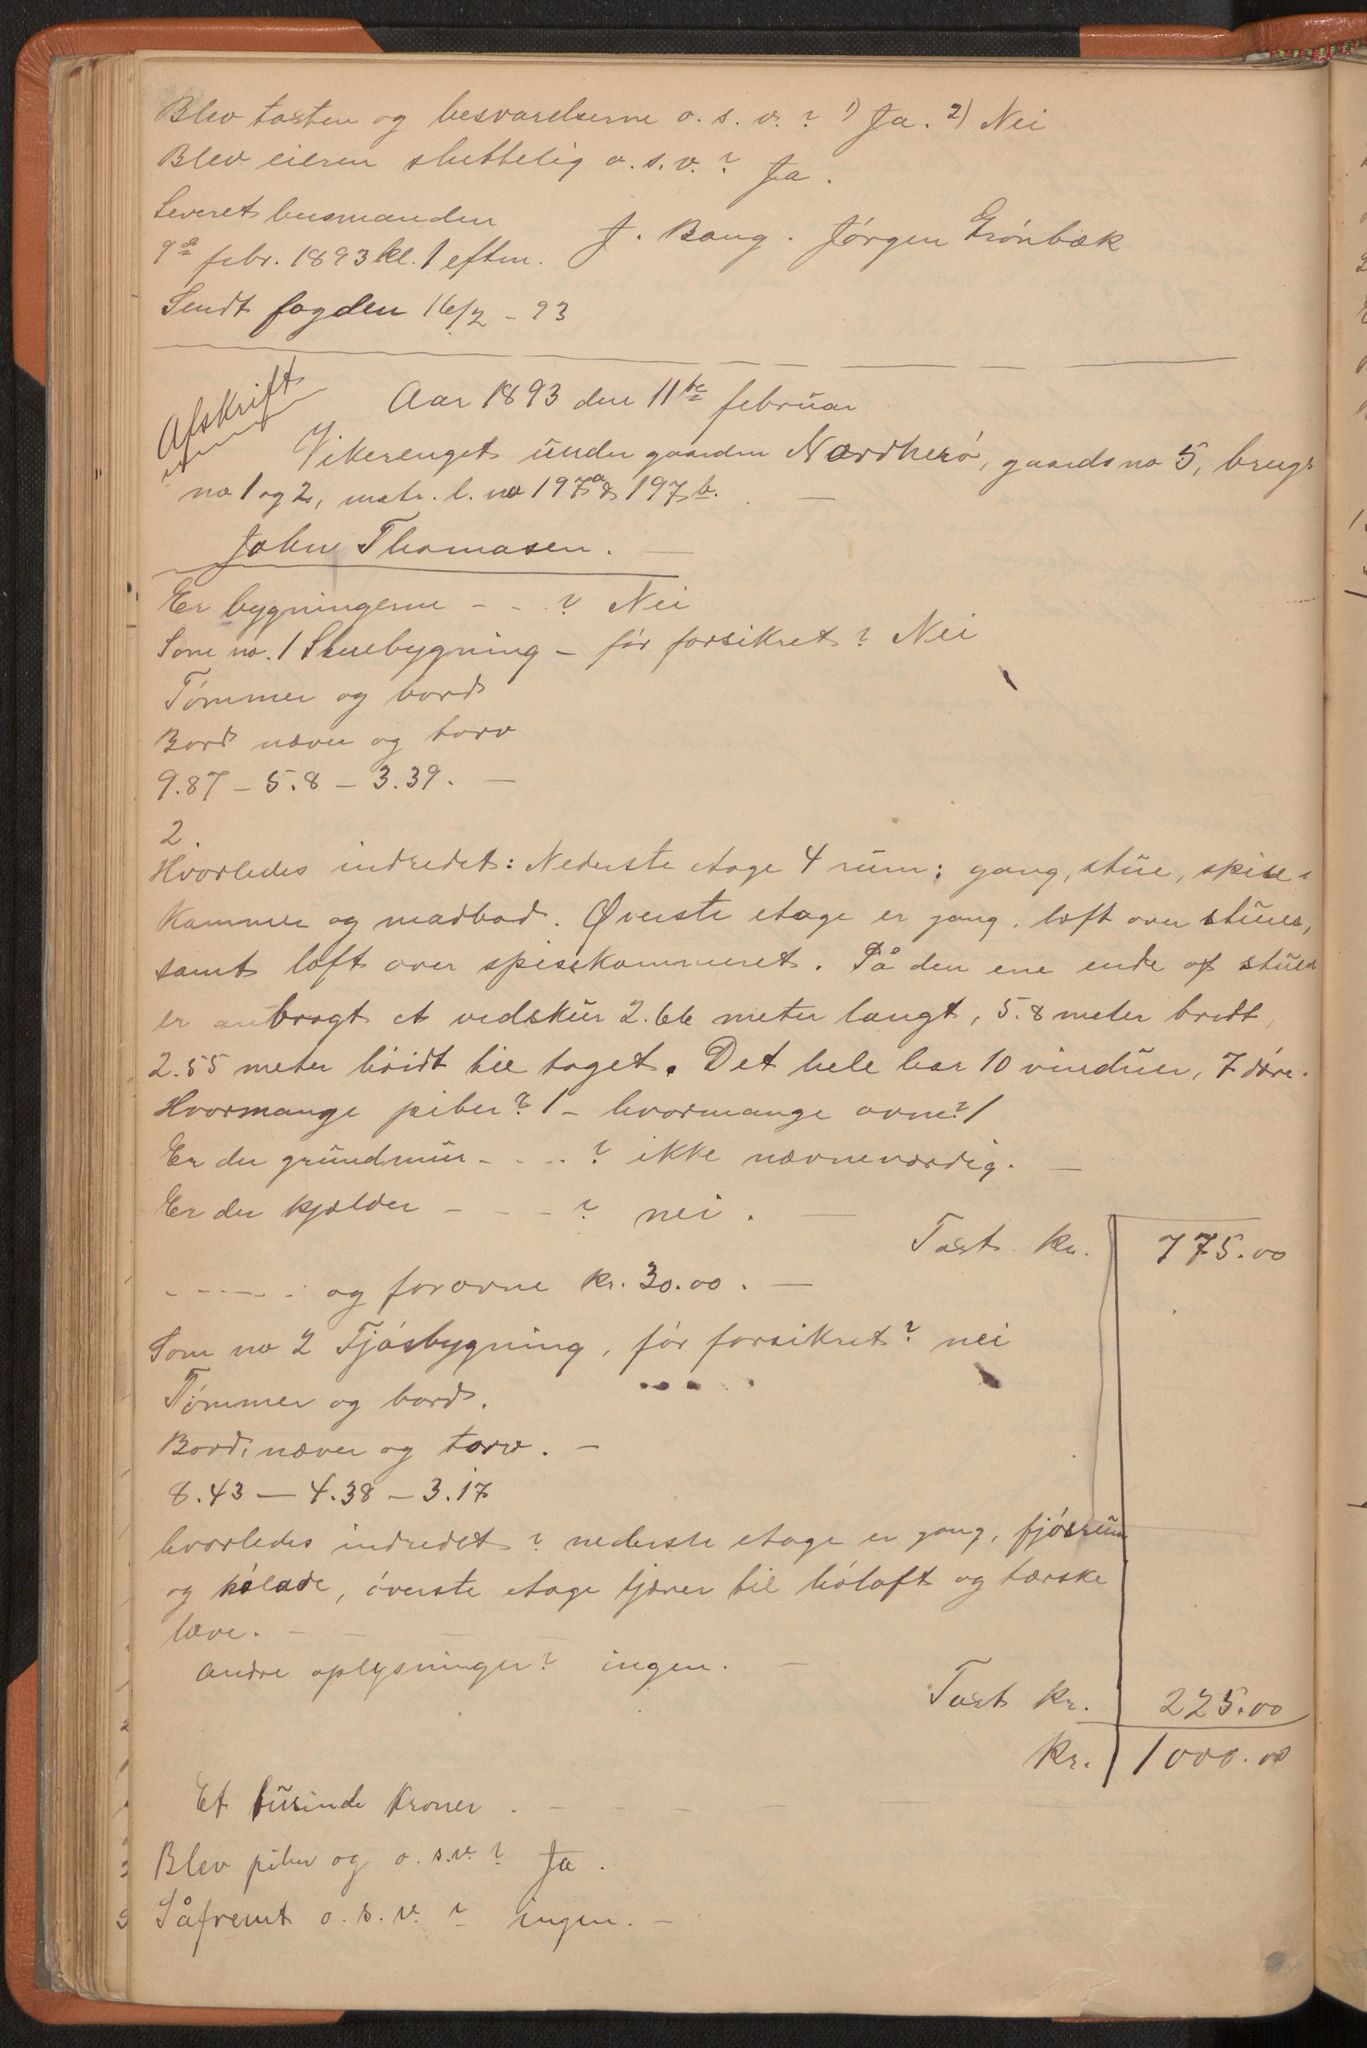 Blev taxten og besvarelserne o. s. v. ? 1) Ja. 2) Nei
Blev eieren sluttelig o. s. v. ? Ja.
Leveret busmanden
9de febr. 1893 kl. 1 eften. J. Bang. Jørgen Grönbæk
Sendt fogden 16/2 - 93
Afskrift
Aar 1893 den 11te februar
Vikerenget under gaarden Nordherö, gaards no 5, brugs
no 1 og 2, matr. l. no 197a & 197b.
John Thomasen.
Er bygningerne - - ? Nei
Som no. 1 Stuebygning - för forsikret ? Nei
Tömmer og bord
Bord næver og torv
9.87 - 5.8 - 3.39. -
2.
Hvorledes indredet: Nederste etage 4 rum; gang, stue, spise-
kammer og madbod. Øverste etage er gang, loft over stuen,
samt loft over spisekammeret. På den ene ende af stuen
er anbragt et vedskur 2.66 meter langt, 5.8 meter bredt,
2.55 meter höidt til taget. Det hele har 10 vinduer, 7 döre.
Hvormange piber ? 1 - hvormange ovne ? 1
Er der grundmur - - - ? ikke nævneværdig. -
Er der kjælder - - - ? nei. -
Taxt kr. 775.00
- - - - - og for ovne kr. 30.00. -
Som no 2 Fjösbygning, för forsikret ? nei
Tömmer og bord.
Bord, næver og torv. -
8.43 - 4.38 - 3.17
hvorledes indredet ? nederste etage er gang, fjösrum
og hölade, överste etage tjæner til höloft og tærske
læve. - - -
andre oplysninger ? ingen. -
Taxt kr. 225.00
kr. 1000.00
Et tusinde kroner. - - - -
Blev piber og o. s. v. ? Ja.
Såfremt o. s. v. ? ingen. -